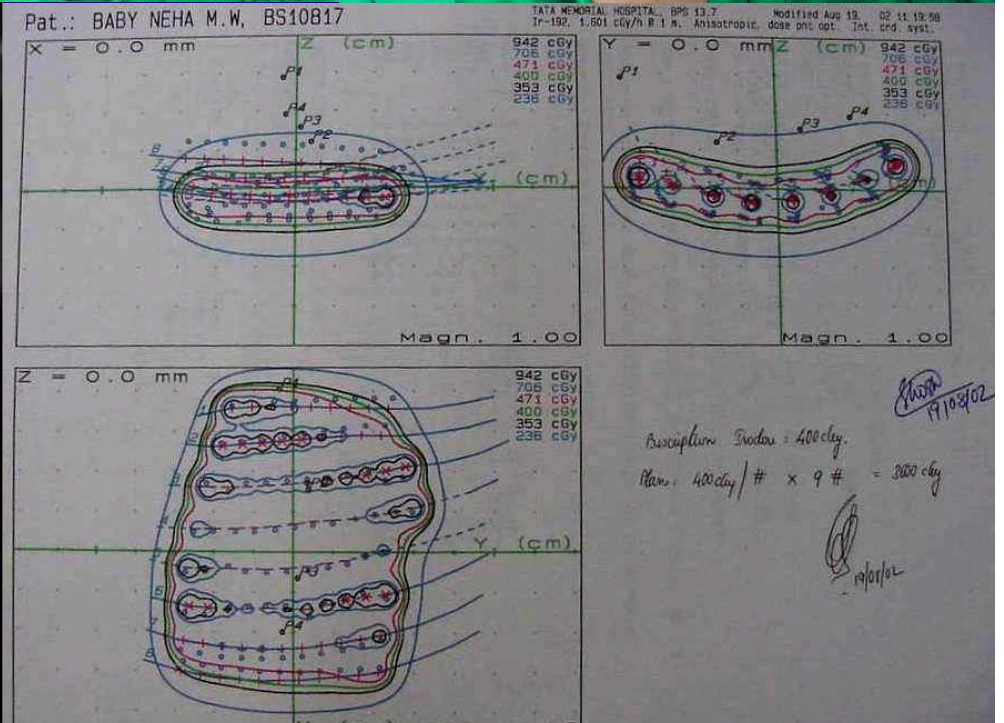 Pat.: BABY NEHA M.W, BS10817
TATA MEMORIAL HOSPITAL, BPS 13.7 Modified Aug 19, 02 11:19:59
Ir-192, 1.601 cGy/h @ 1 m. Anisotropic, dose pnt opt. Int. crd. syst.
X = 0.0 mm
Z (cm)
942 cGy
706 cGy
471 cGy
400 cGy
353 cGy
236 cGy
P1
P4
P3
P2
8
X (cm)
Magn. 1.00
Y = 0.0 mm
Z (cm)
942 cGy
706 cGy
471 cGy
400 cGy
353 cGy
236 cGy
P1
P4
P3
P2
(cm)
Magn. 1.00
Z = 0.0 mm
942 cGy
706 cGy
471 cGy
400 cGy
353 cGy
236 cGy
P1
Y (cm)
P3
P4
19/08/02
: 400 cGy.
Plan: 400 cGy / # x 9 # = 3600 cGy
19/08/02